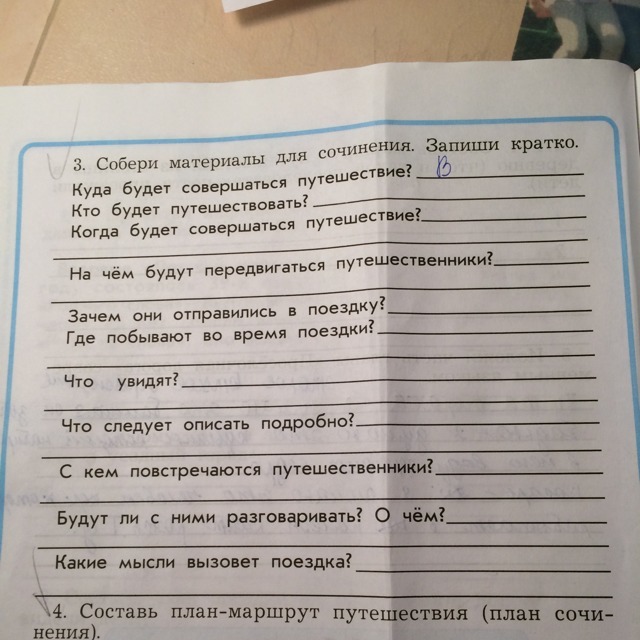 3. Собери материалы для сочинения. Запиши кратко.
Куда будет совершаться путешествие? В
Кто будет путешествовать?
Когда будет совершаться путешествие?
На чём будут передвигаться путешественники?
Зачем они отправились в поездку?
Где побывают во время поездки?
Что увидят?
Что следует описать подробно?
С кем повстречаются путешественники?
Будут ли с ними разговаривать? О чём?
Какие мысли вызовет поездка?
4. Составь план-маршрут путешествия (план сочи-
нения).